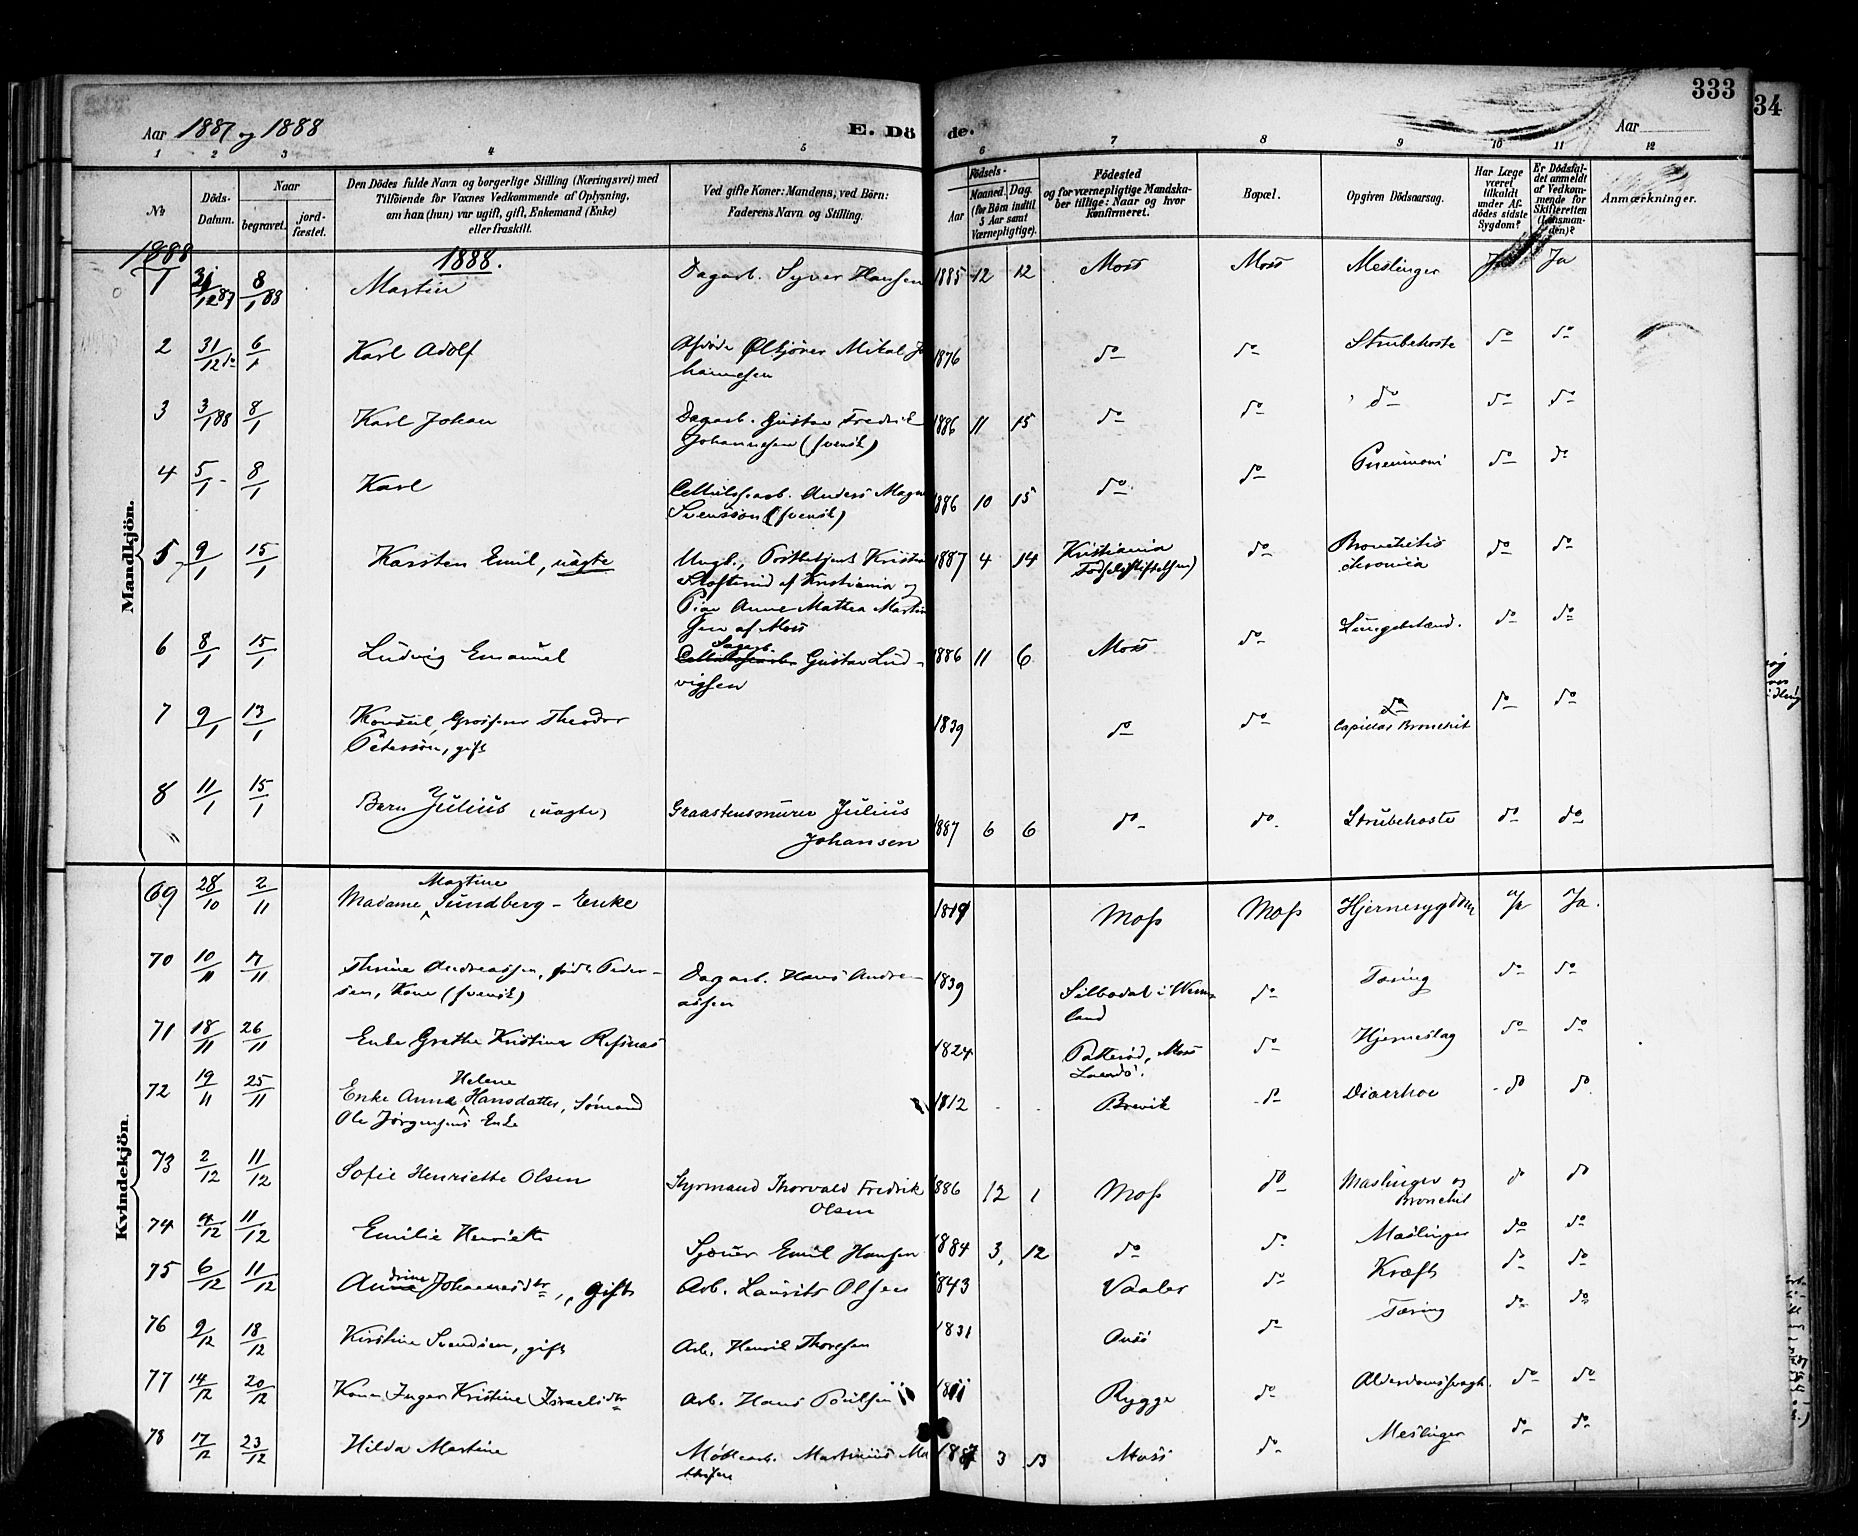 333
34
Aar 1887 og 1888
E. Dö
de.
Aar
1 2 3 4 5 6 7 8 9 10 11 12
No
Döds-
Datum.
Naar
begravet.
jord-
fæstet.
Den Dödes fulde Navn og borgerlige Stilling (Næringsvei) med
Tilföiende for Voxnes Vedkommende af Oplysning,
om han (hun) var ugift, gift, Enkemand (Enke)
eller fraskilt.
Ved gifte Koner: Mandens, ved Börn:
Faderens Navn og Stilling.
Födsels-
Aar
Maaned. Dag.
(for Börn indtil
5 Aar samt
Værnepligtige).
Födested
og for værnepligtige Mandska-
ber tillige: Naar og hvor
konfirmeret.
Bopæl.
Opgiven Dödsaarsag.
Har Læge
været
tilkaldt
under Af-
dödes sidste
Sygdom?
Er Dödsfal-
det anmeldt
af Vedkom-
mende for
Skifteretten
(Lensman-
den)?
Anmærkninger.
Mandkjön.
1888
1888.
1 8/1 88 Martin Dagarb. Syver Hansen 1885 12 12 Moss Moss Meslinger Ja Ja
2 31/12 do 6/1 Karl Adolf Afdöde Mikal Jo
hannesen 1876 do do Strubehoste do do
3 3/1 88 8/1 Karl Johan Dagarb. Gustav Fredrik
Johannesen (svensk) 1886 11 15 do do do do do
4 5/1 - 8/1 Karl Cellulosearb. Anders Magn
Svensson (svensk) 1886 10 15 do do Pneumoni do do
5 9/1 15/1 Karsten Emil, uægte Ungk., Kristia
af Kristiania og
Pige Anne Mathea Martin
sen af Moss 1887 4 14 Kristiania
Födselsstiftelsen) do Bronchitis
chronica do do
6 8/1 15/1 Ludvig Emanuel Dagarb.
Cellulosearb. Gustav Lud-
vigsen 1886 11 6 Moss do Lungebetænd. do do
7 9/1 13/1 Konsul, Grosserer Theodor
Peterson, gift 1839 do do do
Capillær Bronchit do do
8 11/1 15/1 Barn Julius (uægte) Graastensmurer Julius
Johansen 1887 6 6 do do Strubehoste do do
Kvindekjön.
69 28/10 2/11 Martine
Madame Sundberg - Enke 1819 Moss Moss Hjernesygdom Ja Ja.
70 10/11 17/11 Thrine Andreassen, födt Peder-
sen, Kone (svensk) Dagarb. Hans Andre-
assen 1839 Silbodal i Werm-
land do Tæring do do
71 18/11 26/11 Enke Grethe Kristine Refsnæs 1824 Patteröd, Moss
Landd. do Hjerneslag do do
72 19/11 25/11 Helene
Enke Anna Hansdatter, Sömand
Ole Jörgensens Enke 1812 Brevik do Diarrhoe do do
73 2/12 11/12 Sofie Henriette Olsen Styrmand Thorvald Fredrik
Olsen 1886 12 1 Moss do Mæslinger og
Bronchit do do
74 4/12 11/12 Emilie Henriette Sjouer Emil Hansen 1884 3 12 do do Mæslinger do do
75 6/12 11/12 Andrine Johannesdtr, gift Arb. Laurits Olsen 1843 Vaaler do Kræft do do
76 9/12 18/12 Kirstine Svendsen, gift Arb. Henrik Thoresen 1831 Onsö do Tæring do do
77 14/12 20/12 Kone Inger Kristine Israelsdtr Arb. Hans Poulsen 1811 Rygge do Alderdomssvagh. do do
78 17/12 23/12 Hilda Martine Möllearb. Martinius Ma
thisen 1887 3 13 Moss do Meslinger do do